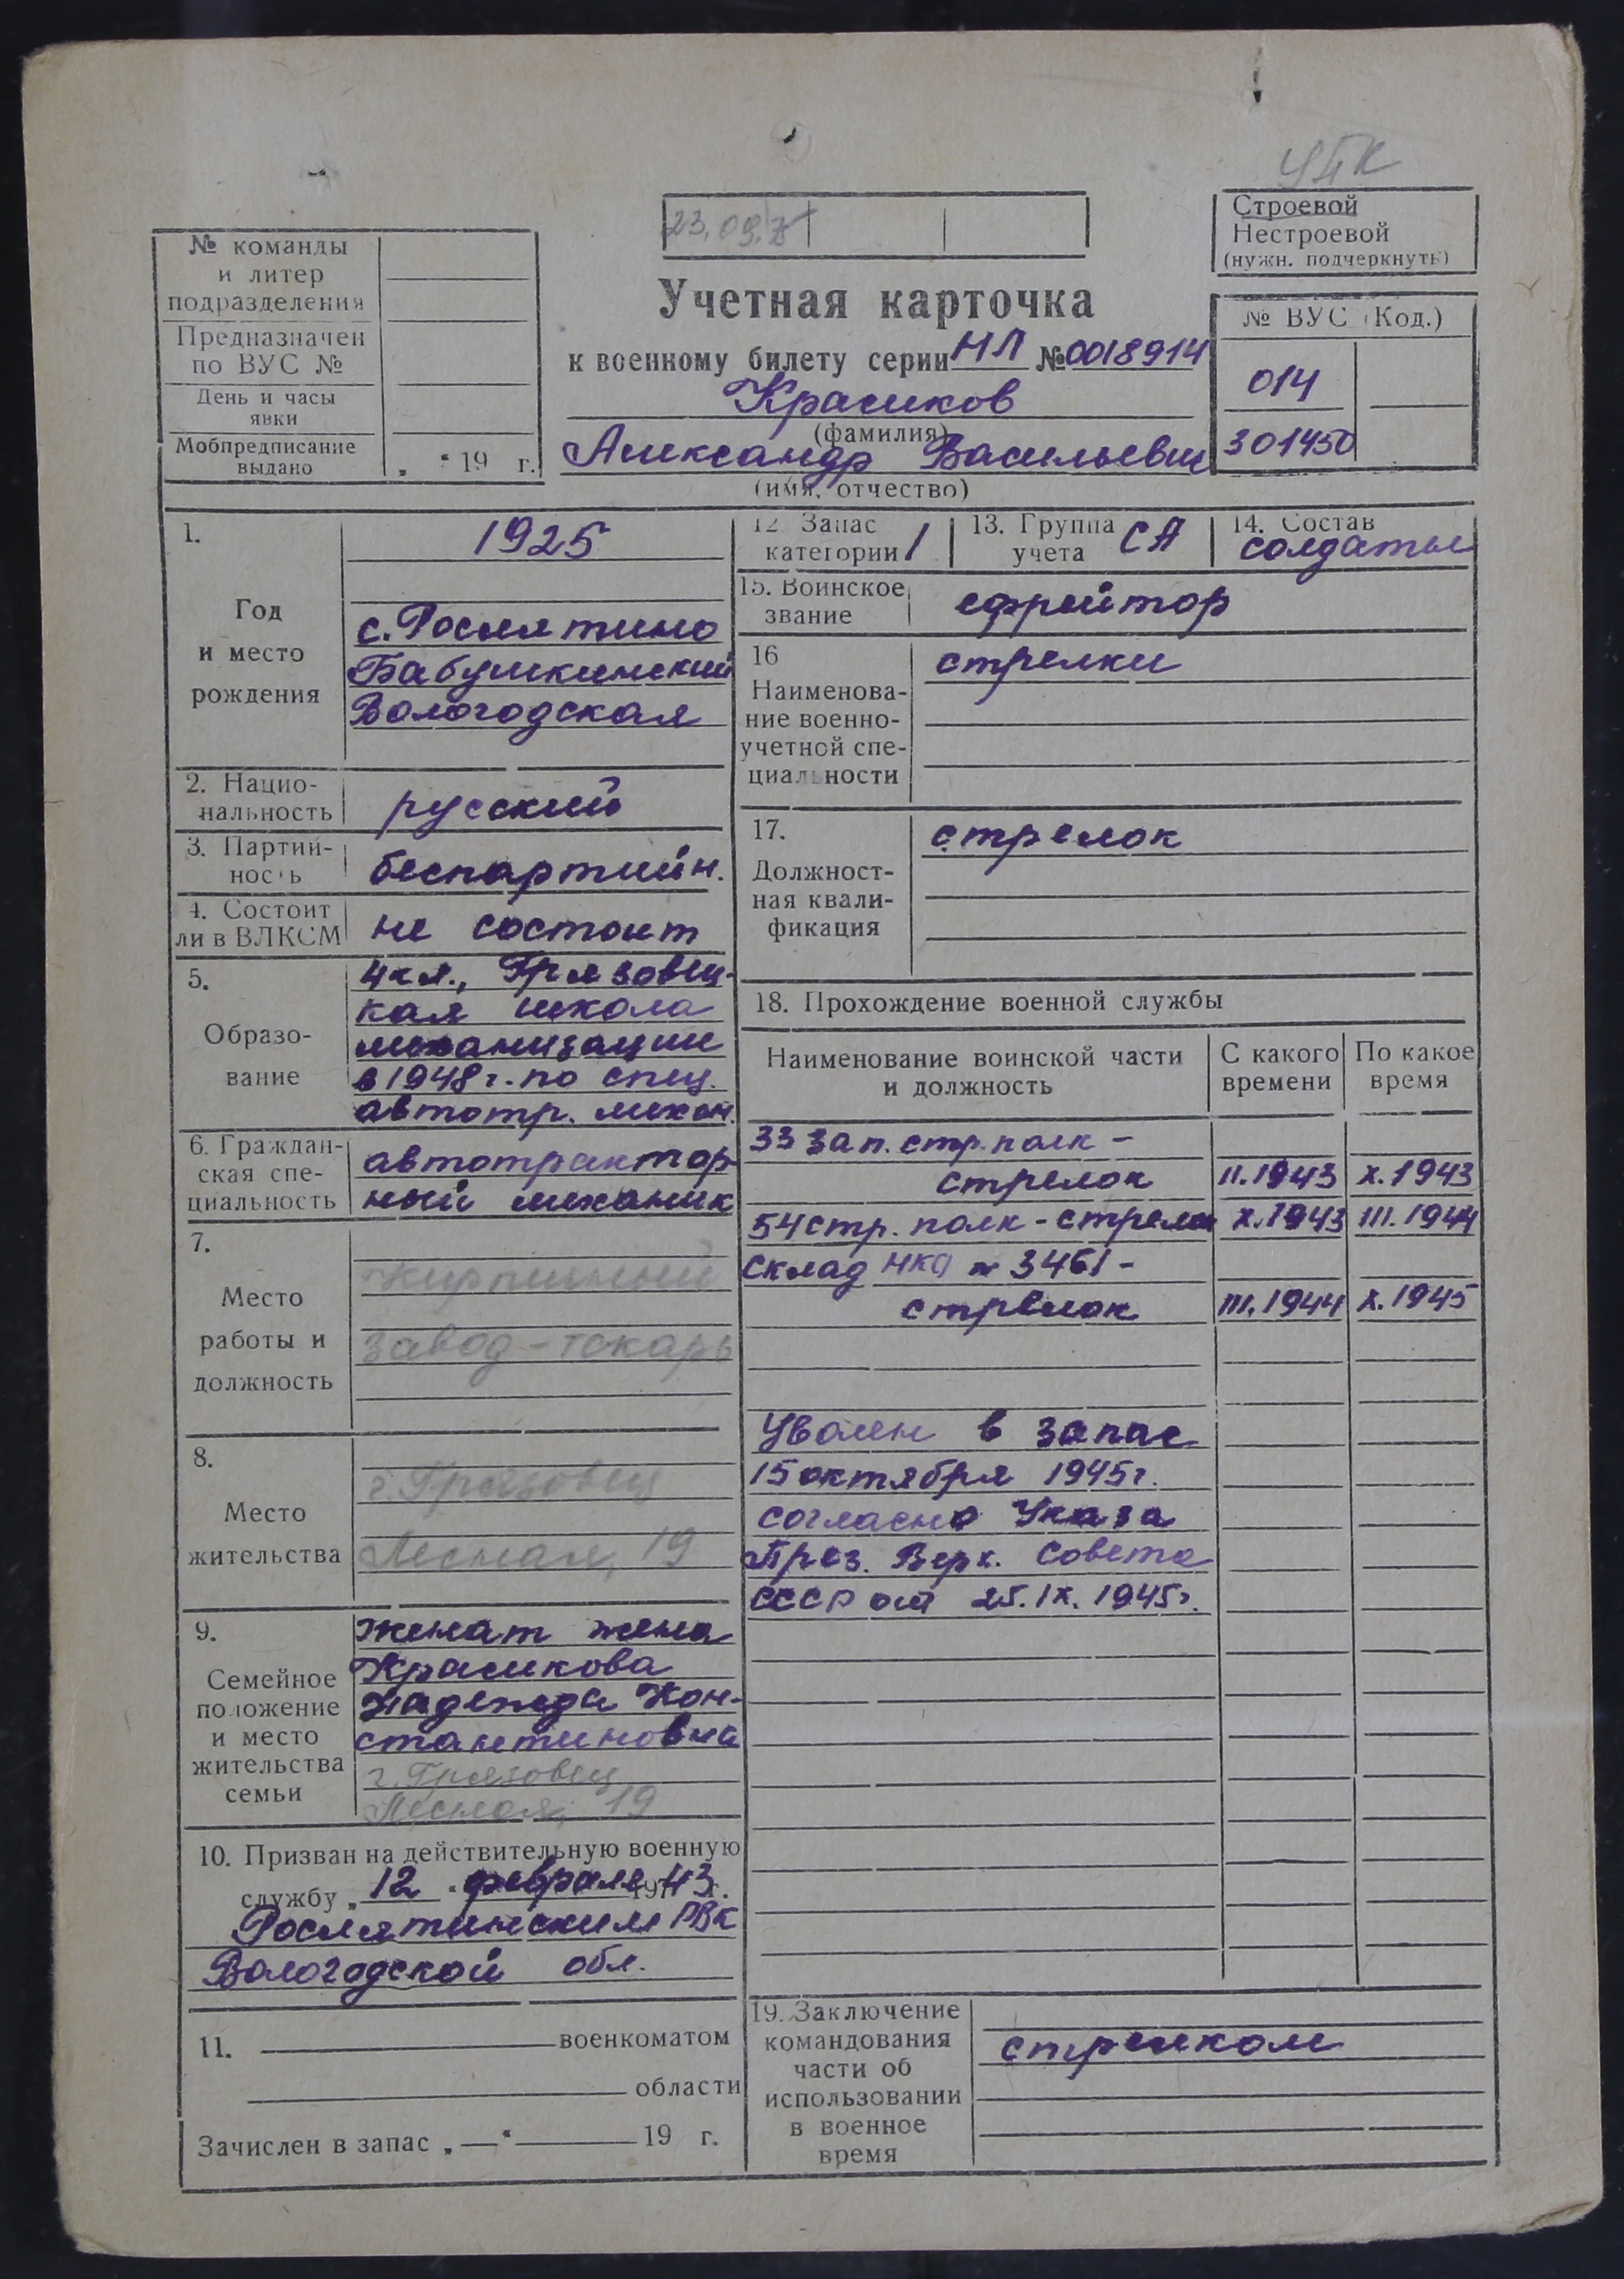 УПК
23.09.
Строевой
Нестроевой
(нужн. подчеркнуть)
№ команды
и литер
подразделения
Предназначен
по ВУС №
День и часы
явки
Мобпредписание
выдано „ “ 19 г.
Учетная карточка
к военному билету серии НЛ № 0018914
Красиков
(фамилия)
Александр Васильевич
(имя, отчество)
№ ВУС (Код.)
014
301450
1.
Год
и место
рождения
1925
с. Рослятино
Бабушкинский
Вологодская
2. Нацио-
нальность
русский
3. Партий-
ность
беспартийн.
4. Состоит
ли в ВЛКСМ
не состоит
5.
Образо-
вание
4 кл., Грязовец-
кая школа
механизации
в 1948 г. по спец.
автотр. механ.
6. Граждан-
ская спе-
циальность
автотрактор-
ный механик
7.
Место
работы и
должность
Кирпичный
завод - токарь
8.
Место
жительства
г. Грязовец
Лесная, 19
9.
Семейное
положение
и место
жительства
семьи
женат жена
Красикова
Надежда Кон-
стантиновна
г. Грязовец
Лесная, 19
10. Призван на действительную военную
службу „ 12 “ февраля 1943 г.
Рослятинским РВК
Вологодской обл.
11. военкоматом
области
Зачислен в запас „ — “ 19 г.
12 Запас
категории 1
13. Группа
учета СА
14. Состав
солдаты
15. Воинское
звание
ефрейтор
16
Наименова-
ние военно-
учетной спе-
циальности
стрелки
17.
Должност-
ная квали-
фикация
стрелок
18. Прохождение военной службы
Наименование воинской части
и должность
С какого
времени
По какое
время
33 зап. стр. полк -
стрелок II.1943 X.1943
54 стр. полк - стрелок X.1943 III.1944
Склад НКО № 3461 -
стрелок III.1944 X.1945
Уволен в запас
15 октября 1945 г.
согласно Указа
През. Верх. Совета
СССР от 25.IX.1945 г.
19. Заключение
командования
части об
использовании
в военное
время
стрелком